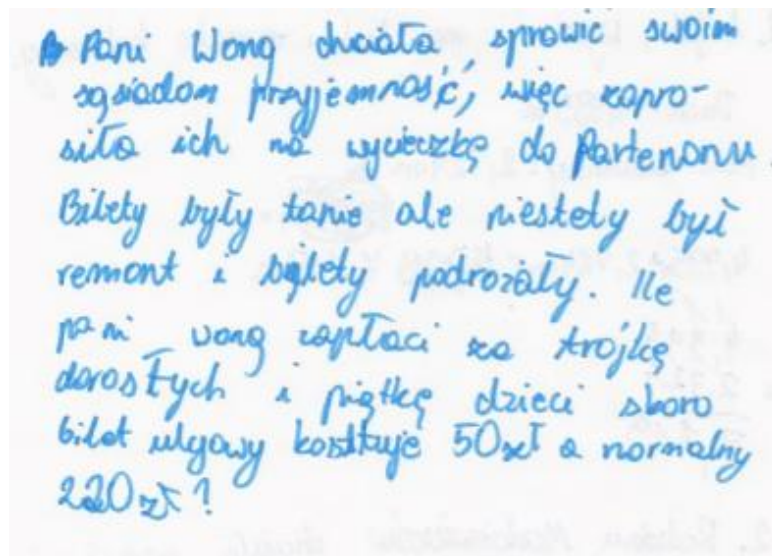 Pani Wong chciała sprawić swoim
sąsiadom przyjemność, więc zapro-
siła ich na wycieczkę do Partenonu.
Bilety były tanie ale niestety był
remont i bilety podrożały. Ile
pani wong zapłaci za trójkę
dorosłych i piątkę dzieci skoro
bilet ulgowy kosztuje 50zł a normalny
220zł?